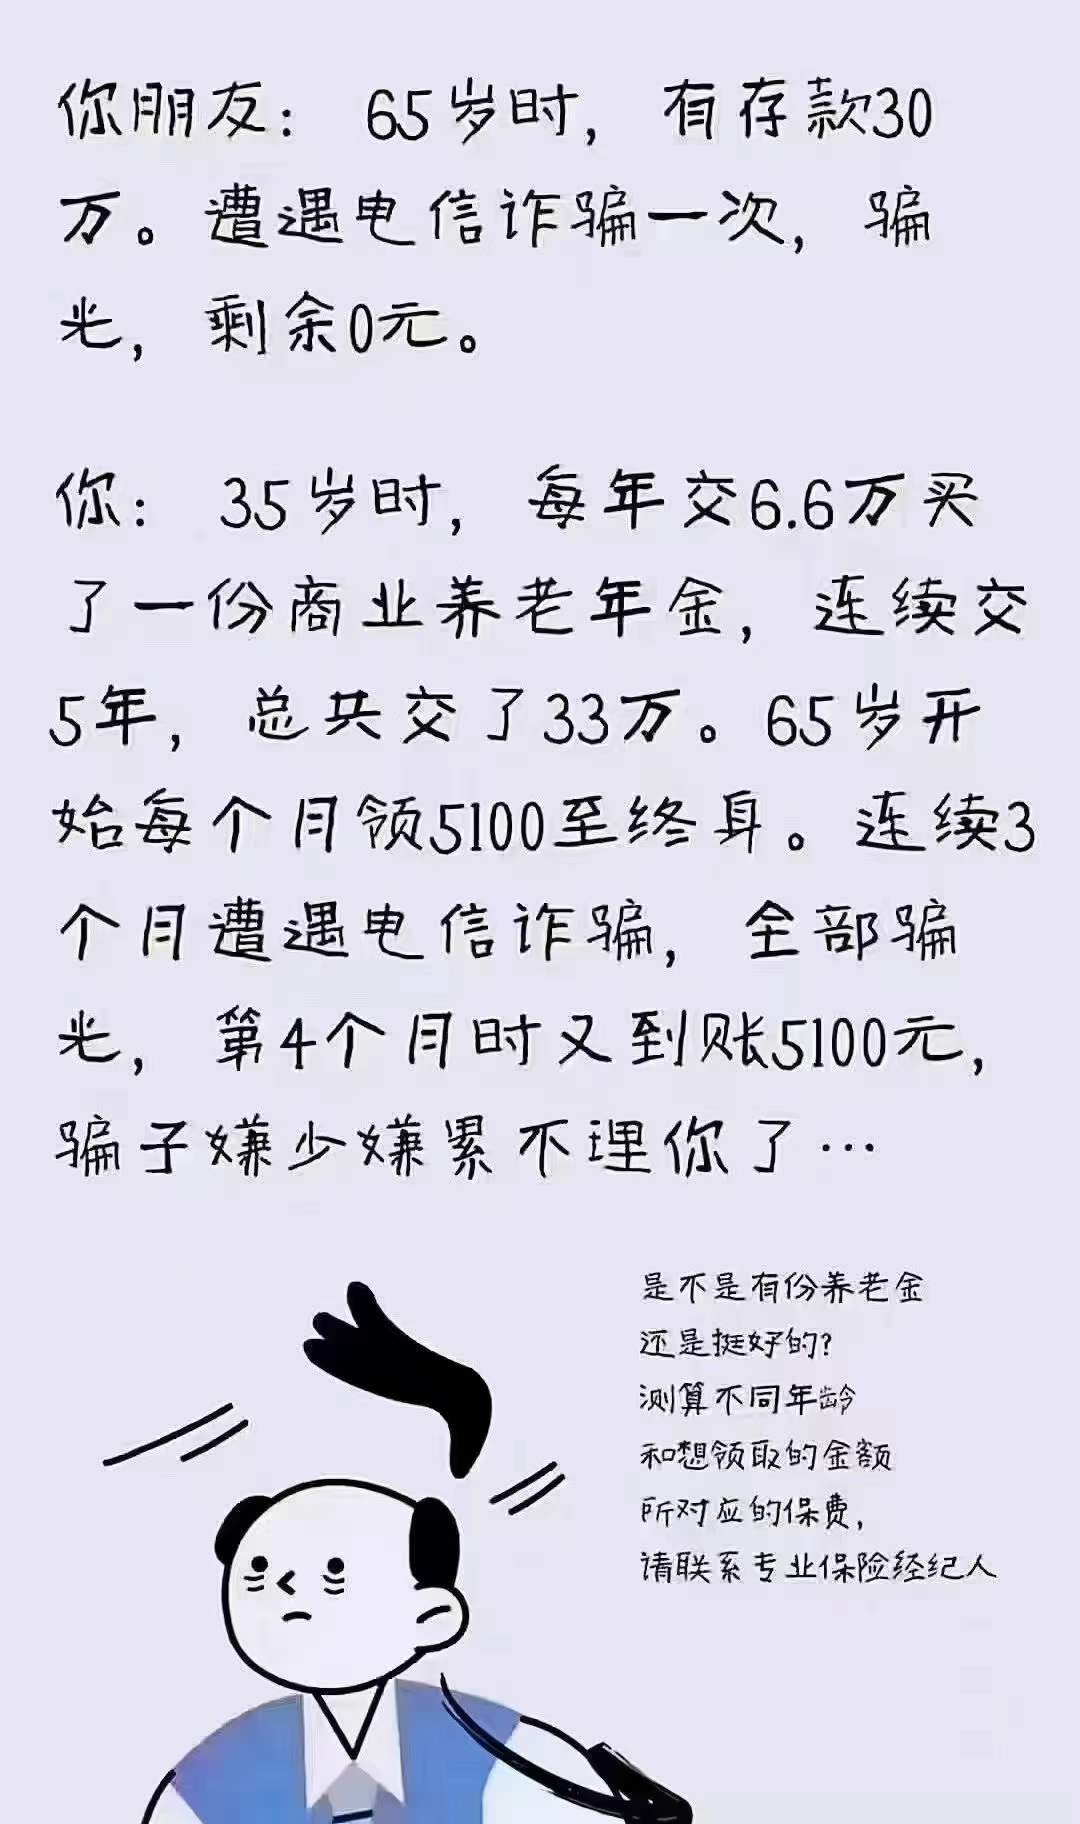 你朋友： 65岁时，有存款30
万。遭遇电信诈骗一次，骗
光，剩余0元。
你： 35岁时，每年交6.6万买
了一份商业养老年金，连续交
5年，总共交了33万。65岁开
始每个月领5100至终身。连续3
个月遭遇电信诈骗，全部骗
光，第4个月时又到账5100元，
骗子嫌少嫌累不理你了…
是不是有份养老金
还是挺好的？
测算不同年龄
和想领取的金额
所对应的保费，
请联系专业保险经纪人